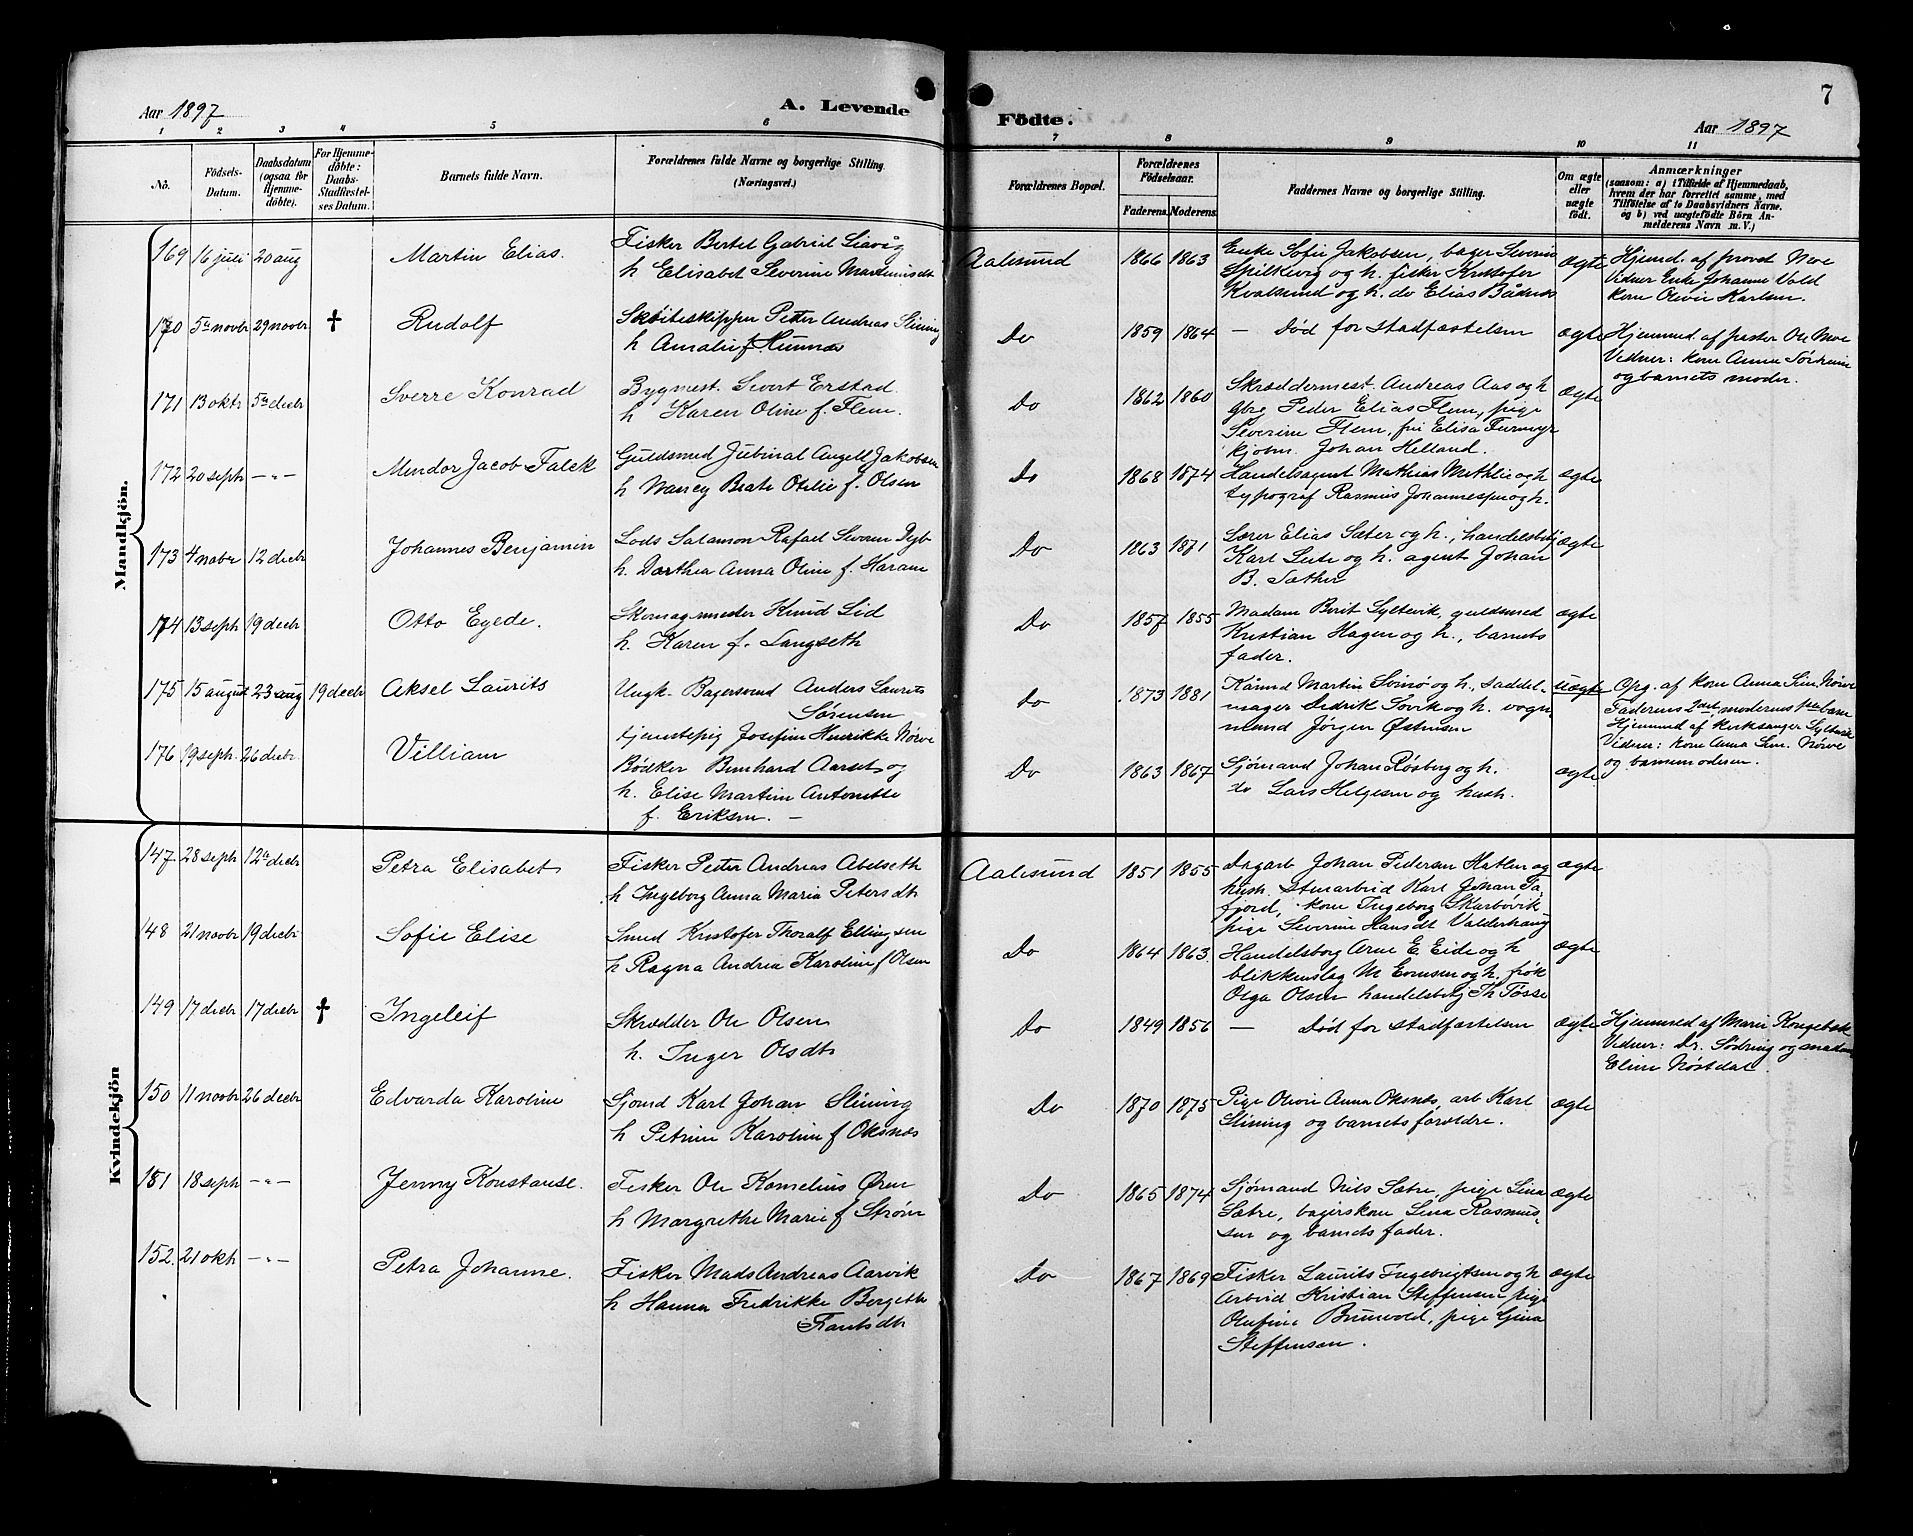 Aar 1897
A. Levende
Födte.
Aar 1897
7
1 2 3 4 5 6 7 8 9 10 11
No.
Födsels-Datum.
Daabsdatum (ogsaa for Hjemme-döbte).
For Hjemme-döbte: Daabs-Stadfæstel-ses Datum.
Barnets fulde Navn.
Forældrenes fulde Navne og borgerlige Stilling.
(Næringsvei.)
Forældrenes Bopæl.
Forældrenes Födselsaar.
Faderens. Moderens.
Faddernes Navne og borgerlige Stilling.
Om ægte eller uægte födt.
Anmærkninger
(saasom: a) i Tilfælde af Hjemmedaab,
hvem der har forrettet samme, med
Tilföielse af to Daabsvidners Navne.
og b) ved uægtefödte Börn An-
melderens Navn m. V.)
Mandkjön.
169 16 juli 20 aug Martin Elias. Fisker Bertel Gabriel Siavåg
h Elisabet Severine Martinusdt
Aalesund 1866 1863 Enke Sofie Jakobsen, bager Severin
Spilkevig og h. fisker Kristofer
Kvalsund og h. do Elias Bådsnes
ægte Hjemd. af provst Moe
Vidner Enke Johanne Vold
kone Olivie Karlsen.
170 5te novbr 29 novbr † Rudolf Sköiteskipper Petter Andreas Slining
h Amalie f. Humnæs
Do 1859 1864 — Död for stadfæstelsen ægte Hjemmed. af pastor Ole Moe
Vidner: kone Anna Sörheim
og barnets moder.
171 13 oktr 5te decbr Sverre Konrad Bygmest. Sivert Erstad
h Karen Oline f. Flem.
Do 1862 1860 Skræddermest. Andreas Aas og h
gbrg Peder Elias Flem, pige
Severine Flem, frk Elisa Furmyr
kjøbm. Johan Helland. ægte
172 20 septr —"— Mindor Jacob Falck Guldsmed Jubinal Angell Jakobsen
h Nancy Beate Otilie f. Olsen
Do 1868 1874 Handelsagent Mathias Methlie og h
typograf Rasmus Johannessen og h. ægte
173 4 novbr 12 decbr Johannes Benjamin Lods Salamon Rafael Severin Dyb
h. Dorthea Anna Oline f. Haram
Do 1863 1871 Lærer Elias Sæter og h., handelsbetj
Karl Leite og h. agent Johan
B. Sæther ægte
174 13 septr 19 decbr Otto Egede. Skomagermester Knud Lid
h. Karen f. Langseth
Do 1857 1855 Madam Berit Syltevik, guldsmed
Kristian Hagen og h., barnets
fader. ægte
175 15 august 23 aug 19 decbr Aksel Laurits Ungk. Bagersvend Anders Laurits
Sørensen
tjenestepig Josefine Henrikke Nörve
Do 1873 1881 Kånd Martin Svinø og h, saddel-
mager Didrik Sovik og h. vogn-
mand Jörgen Østensen
uægte Opg. af kone Anna Sim. Nörve
Faderens 2det, moderens 1ste barn
Hjemmed af kirksanger Syltevik
Vidner: kone Anna Sim. Nörve
og barnemoderen.
176 19 septr. 26 decbr. Villiam Bödker Bernhard Aarset og
h. Elise Martine Antonette
f. Eriksen. —
Do 1863 1867 Sjömand Johan Røsberg og h.
do Lars Helgesen og hush. ægte
Kvindekjön
147 28 septr 12te decbr Petra Elisabet Fisker Peter Andreas Abelseth
h Ingeborg Anna Maria Petersdt
Aalesund 1851 1855 Dagarb Johan Pedersen Hatlen og
hush. Stenarbeid Karl Johan Ta
fjord, kone Ingeborg Skarbövik
pige Severine Hansdt Valderhaug ægte
148 21 novbr 19 decbr Sofie Elise Smed Kristofer Thoralf Ellingsen
h Ragna Andrea Karoline f Olsen
Do 1864 1863. Handelsborg Arne E. Eide og h
blikkenslag M Evensen og h. frök
Olga Olsen handelsbetj Th Tösse ægte
149 17 decbr 17 decbr † Ingeleif Skrædder Ole Olsen
h. Inger Olsdt
Do 1849 1856 — Död for stadfæstelsen ægte Hjemmed af Marie Kongsbak
Vidner: Dr. Södring og madam
Eline Nöstdal
150 11 novbr 26 decbr Edvarda Karoline Sjomd Karl Johan Slining
h Petrine Karoline f Oksnes
Do 1870 1875 Pige Olivie Anna Oksnes, arb Karl
Slining og barnets forældre. ægte
151 18 septr —"— Jenny Konstanse. Fisker Ole Kornelius Ören
h Margrethe Marie f Ström
Do 1865 1874 Sjømand Nils Sætre, pige Lina
Sætre, bagerskone Lina Rasmus-
sen og barnets fader. ægte
152. 21 oktr —"— Petra Johanne. Fisker Mads Andreas Aarvik
h Hanna Fredrikke Bergete
Frantsdt
Do 1867 1869 Fisker Laurits Ingebrigtsen og h
Arbeid Kristian Steffensen pige
Olufine Brunvold, pige Gina
Steffensen. ægte